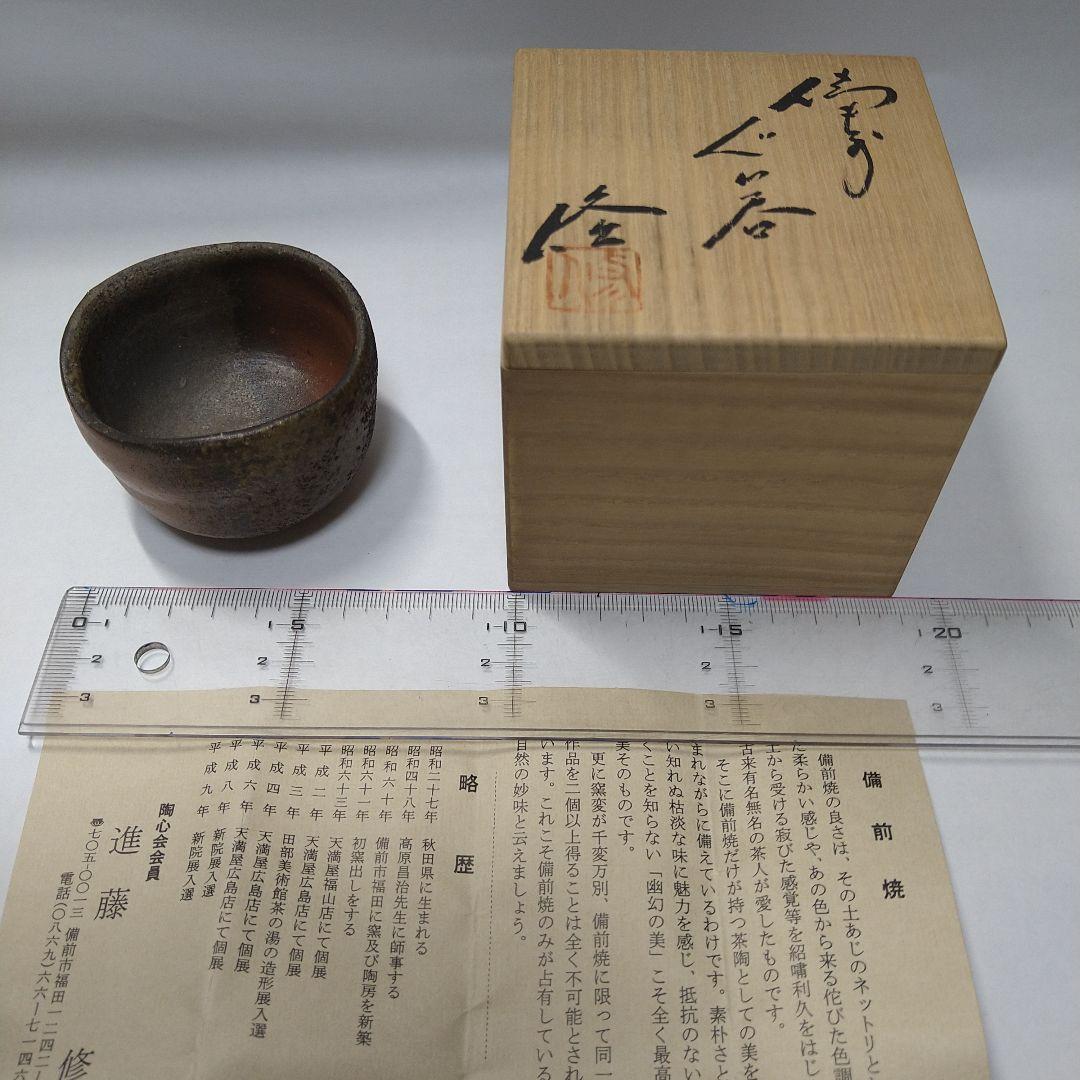 備前
ぐい呑
0 5 10 15 20
1 1 1 1 1
2 2 2 2 2
3 3 3 3 3
備前焼
備前焼の良さは、その土あじのネットリと
た柔らかい感じや、あの色から来る佗びた色調
土から受ける寂びた感覚等を紹嘯利久をはじ
古来有名無名の茶人が愛したものです。
そこに備前焼だけが持つ茶陶としての美を
まれながらに備えているわけです。素朴さと
い知れぬ枯淡な味に魅力を感じ、抵抗のない
くことを知らない「幽幻の美」こそ全く最高
美そのものです。
更に窯変が千変万別、備前焼に限って同一
作品を二個以上得ることは全く不可能とされ
います。これこそ備前焼のみが占有している
自然の妙味と云えましょう。
略歴
昭和二十七年 秋田県に生まれる
昭和四十八年 高原昌治先生に師事する
昭和六十年 備前市福田に窯及び陶房を新築
昭和六十一年 初窯出しをする
昭和六十三年 天満屋福山店にて個展
平成二年 天満屋広島店にて個展
平成三年 田部美術館茶の湯の造形展入選
平成四年 天満屋広島店にて個展
平成六年 天満屋広島店にて個展
平成八年 新院展入選
平成九年 新院展入選
陶心会会員
進藤 修
〒七〇五-〇〇一三 備前市福田一二四二-
電話(〇八六九)六六-七一四六